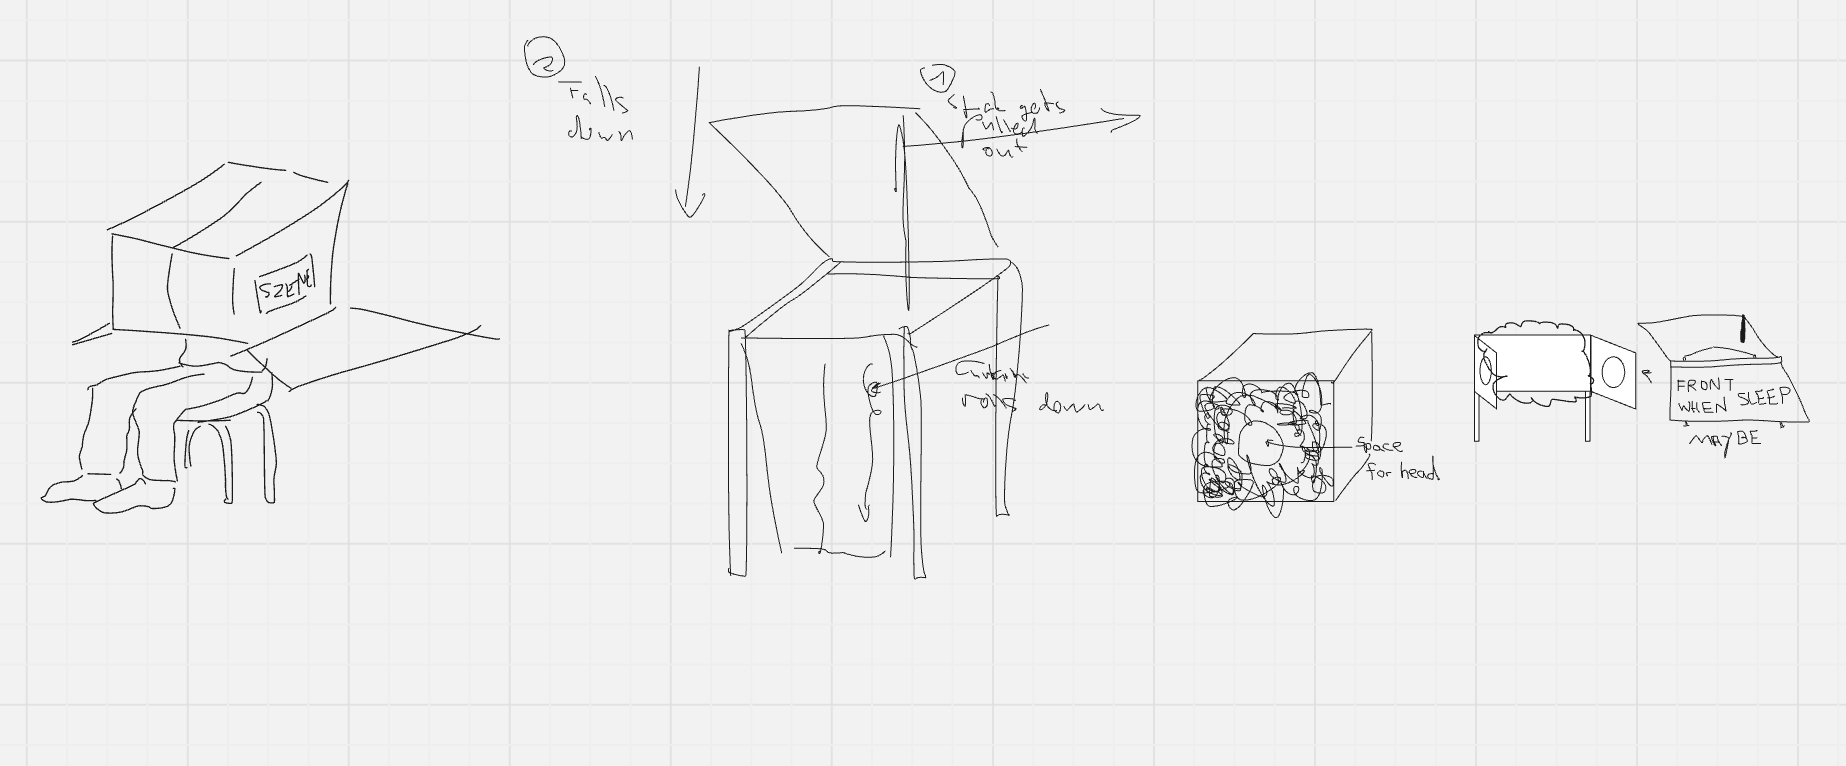 SZEME
2
Falls
down
1
Stick gets
Pulled
out
rolls down
Space
for head
FRONT
WHEN SLEEP
MAYBE